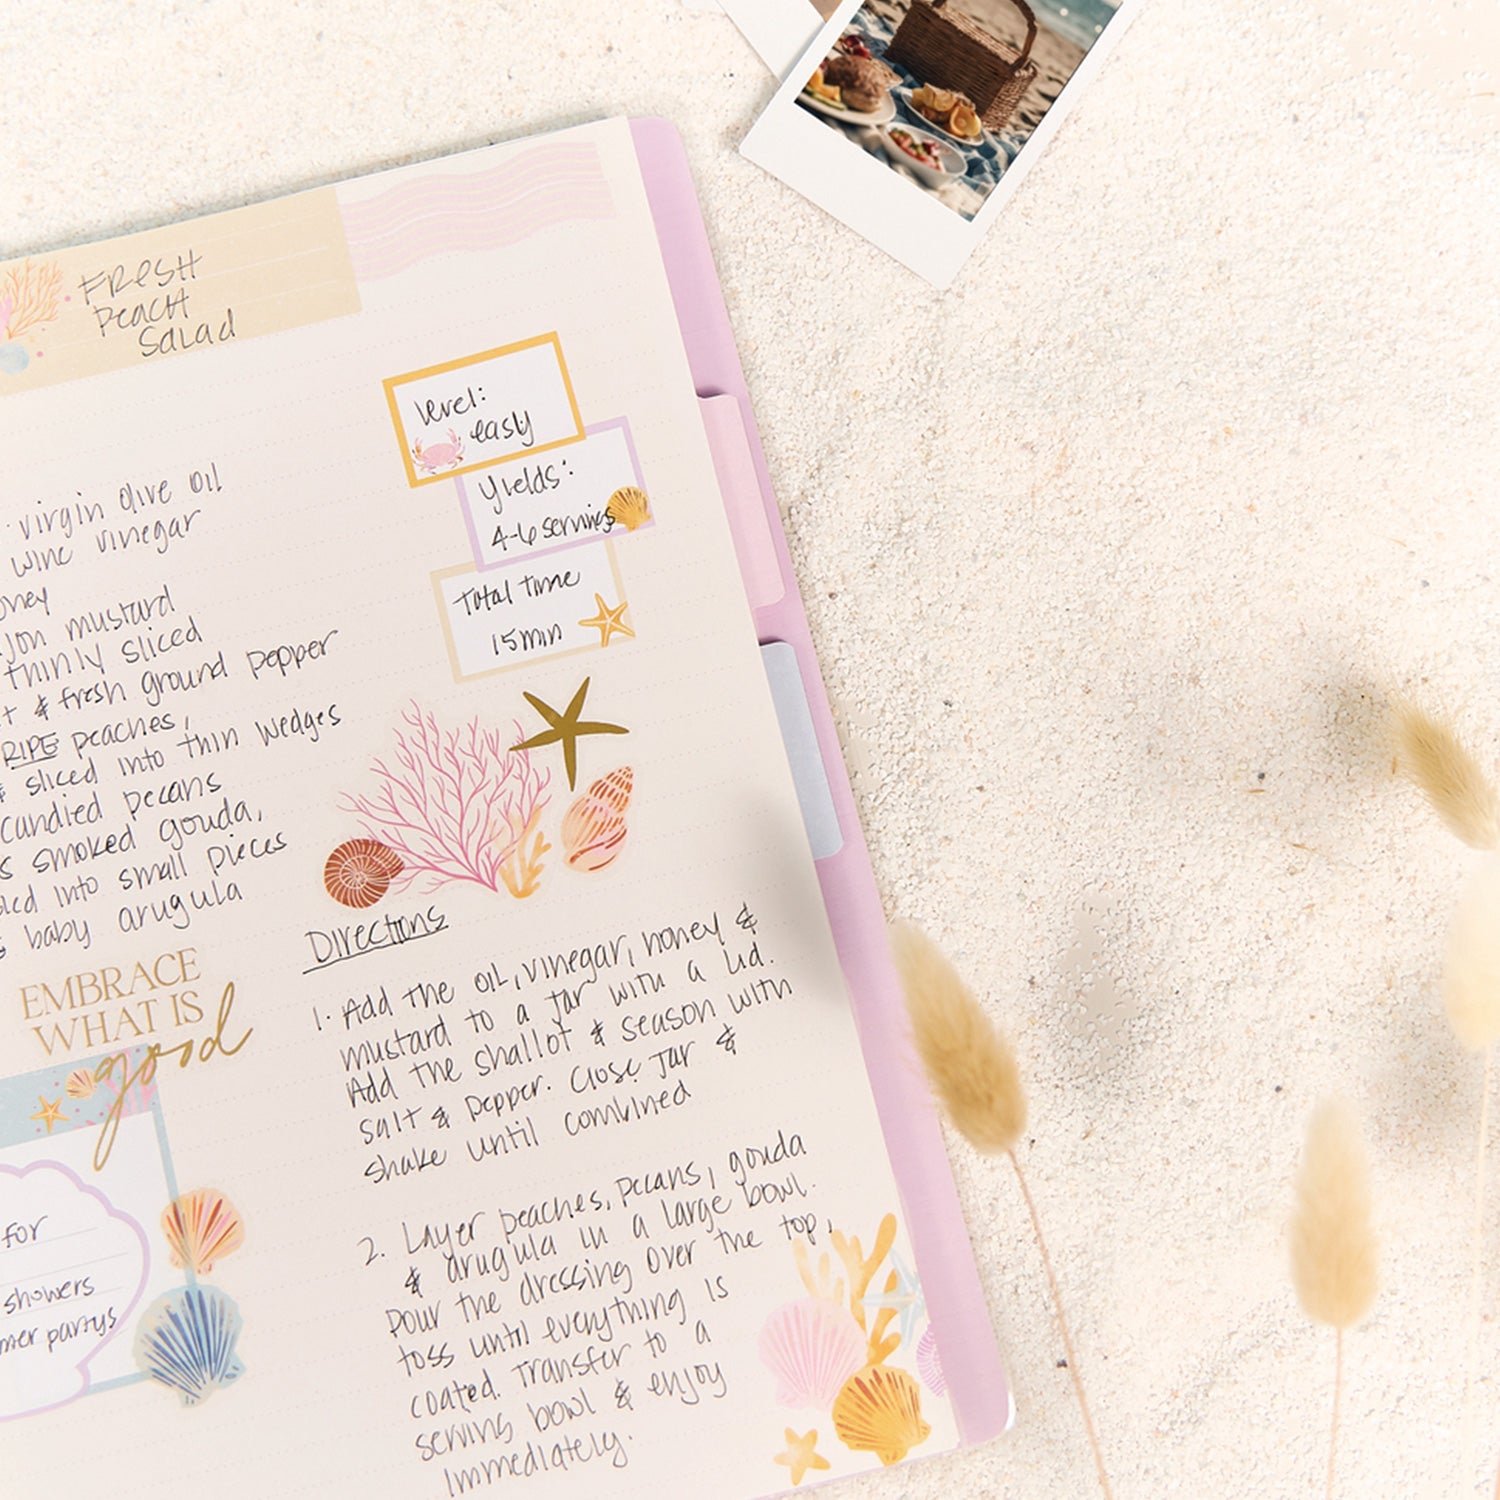 FRESH
Peach
Salad
level:
easy
Yields:
4-6 servings
Total Time
15 min
virgin olive oil
wine vinegar
oney
jon mustard
thinly sliced
t & fresh ground pepper
RIPE peaches,
& sliced into thin wedges
candied pecans
s smoked gouda,
into small pieces
baby arugula
EMBRACE
WHAT IS
good
for
showers
mer partys
Directions
1. Add the oil, vinegar, honey &
mustard to a jar with a lid.
Add the shallot & season with
salt & pepper. Close jar &
shake until combined
2. Layer peaches, pecans, gouda
& arugula in a large bowl.
Pour the dressing over the top,
toss until everything is
coated. Transfer to a
serving bowl & enjoy
immediately.